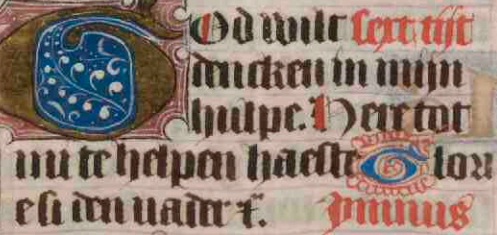 God wilt sext tijt
dencken in mijn
hulpe. Heer tot
mi te helpen haeste Glori
e si den uader &c. ymnus